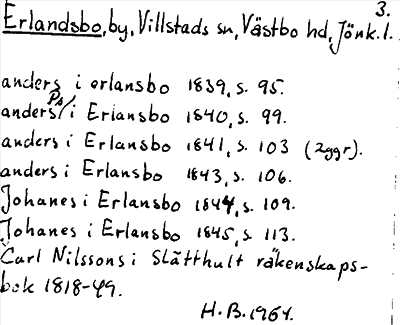 3.
Erlandsbo, by, Villstads sn, Västbo hd, Jönk. l.
anders i erlansbo 1839, s. 95.
anders Ps/ i Erlansbo 1840, s. 99.
anders i Erlansbo 1841, s. 103 (2ggr).
anders i Erlansbo 1843, s. 106.
Johanes i Erlansbo 1844, s. 109.
Johanes i Erlansbo 1845, s. 113.
Carl Nilssons i Slätthult räkenskaps-
bok 1818-49.
H.B. 1964.